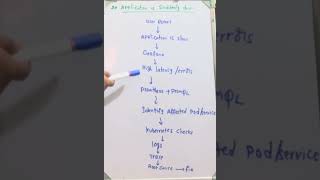 Application is Suddenly slow
User Report
Application is slow
Grafana
High latency/errors
Prometheus + PromQL
Identify Affected Pod/service
Kubernetes Checks
logs
Trace
Root Cause → Fix